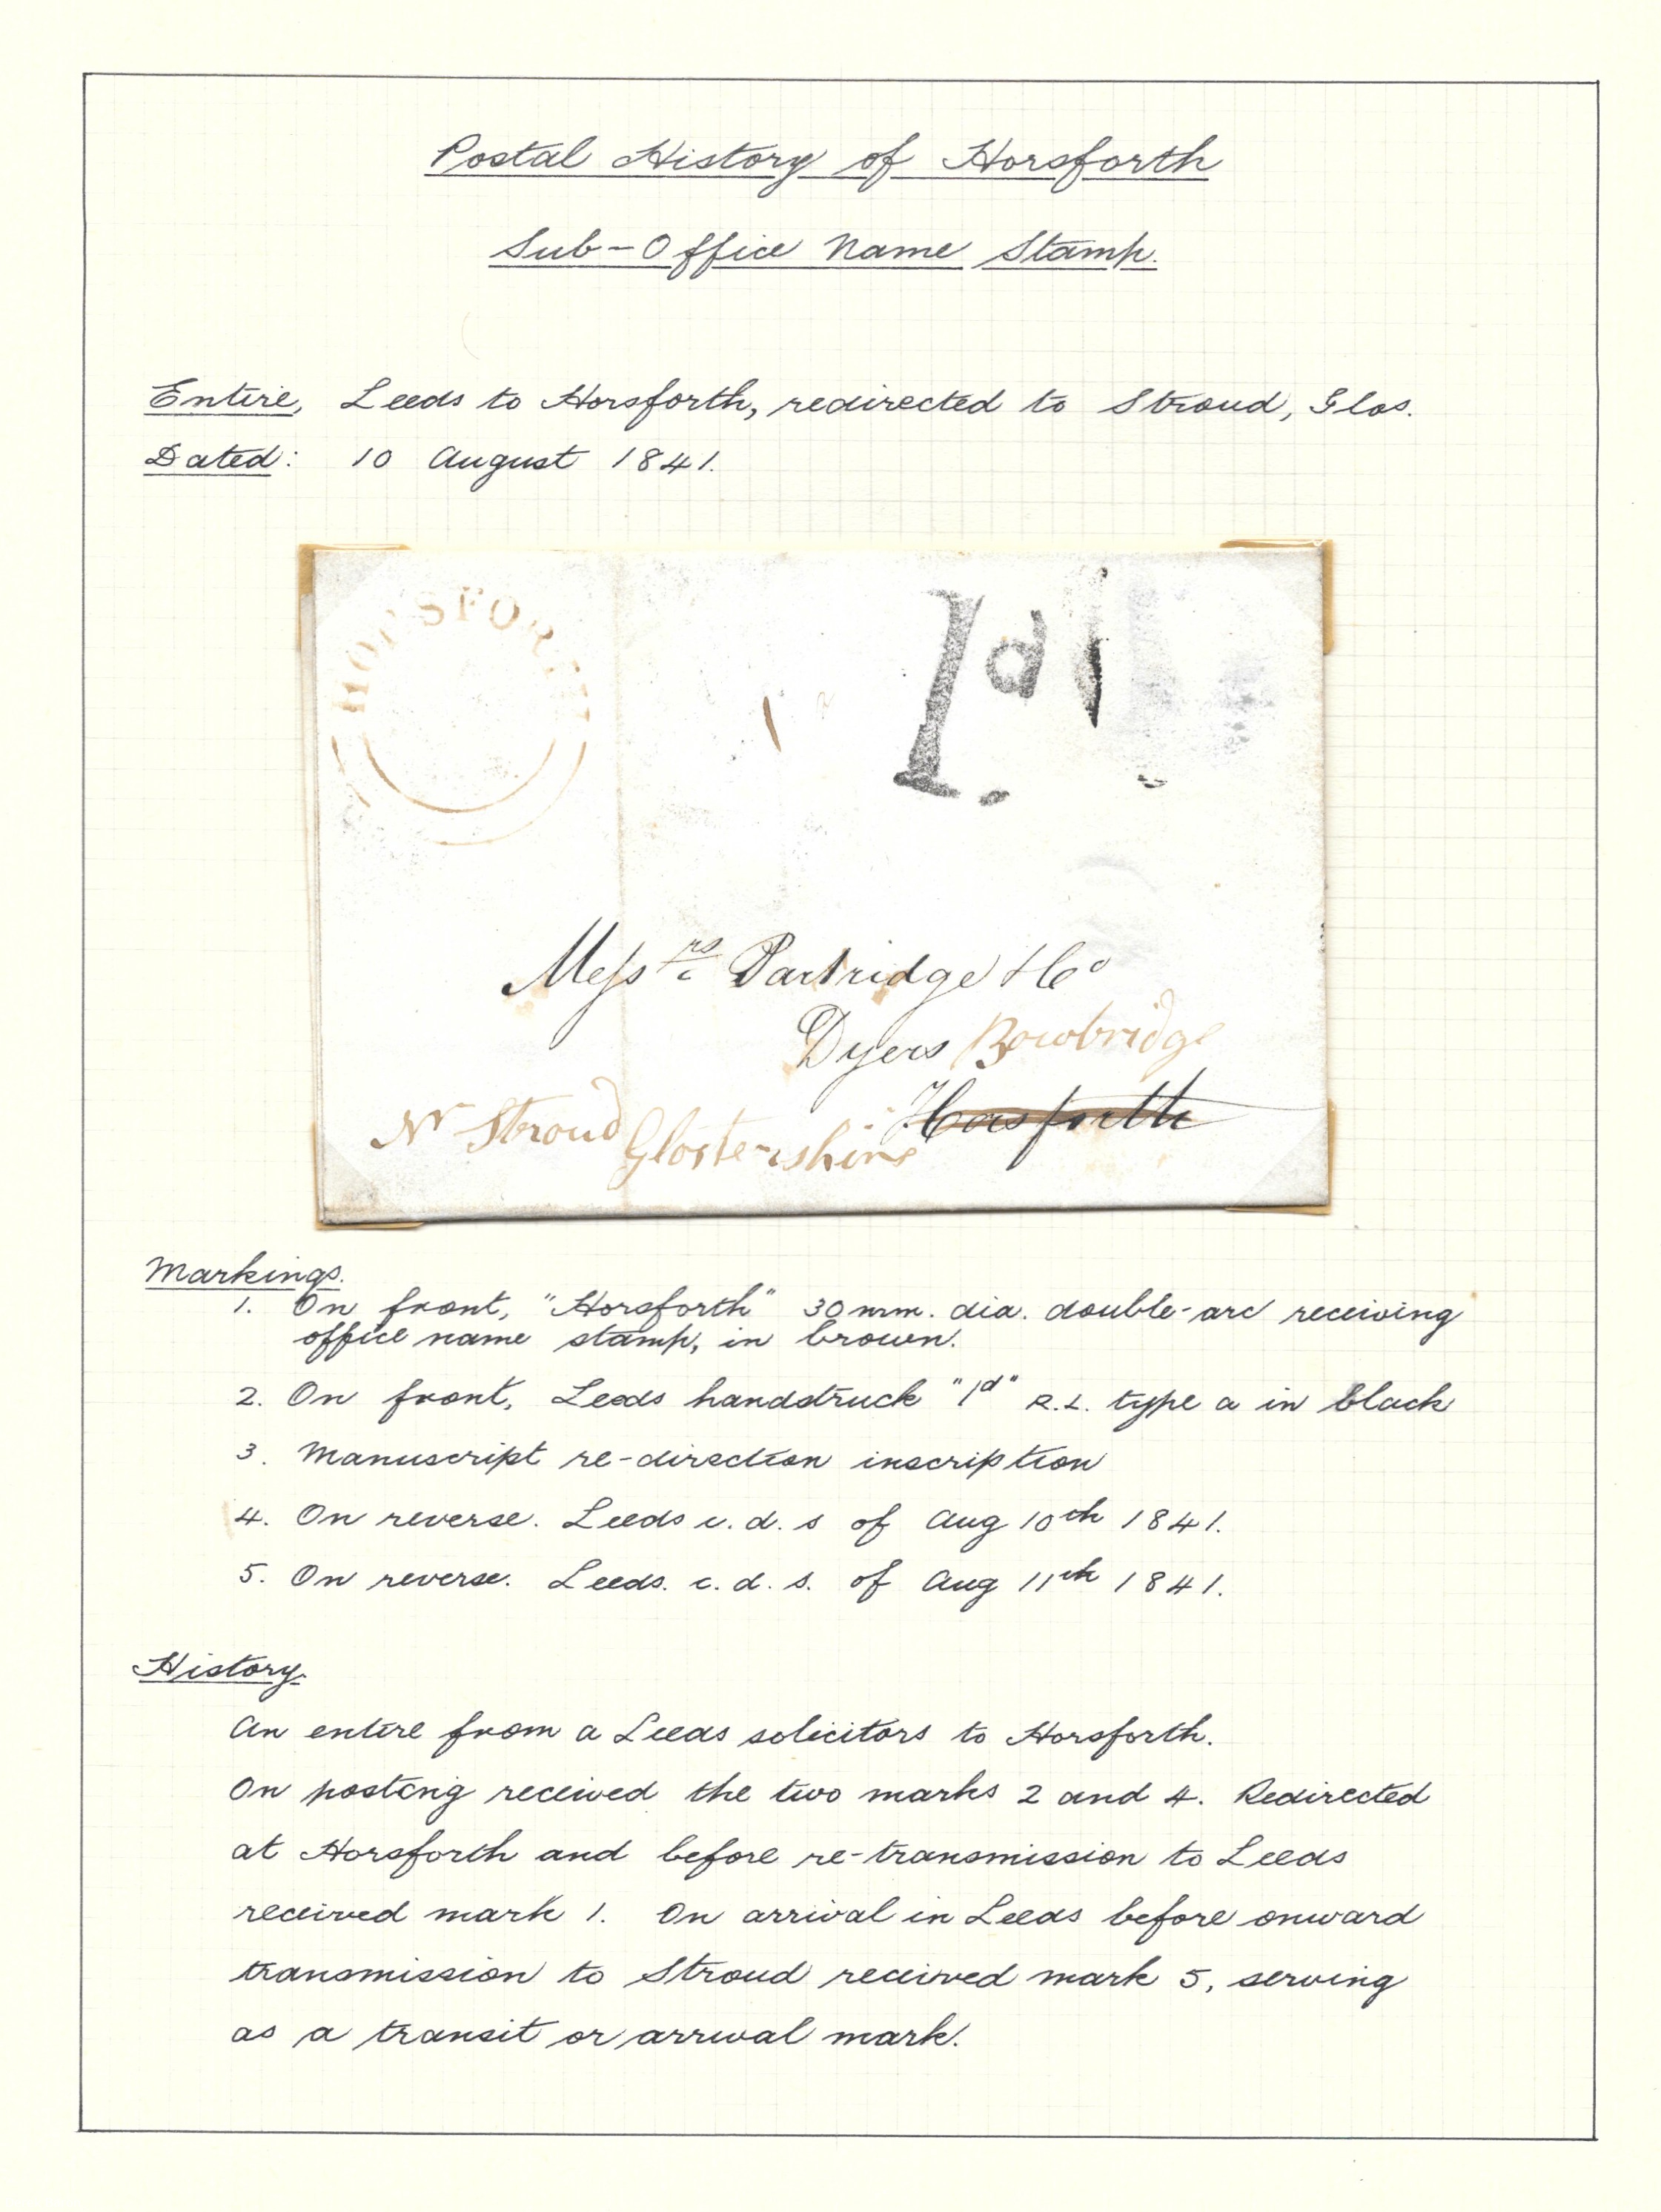 Postal History of Horsforth
Sub-Office Name Stamp.
Entire, Leeds to Horsforth, redirected to Stroud, Glos.
Dated: 10 August 1841.
HORSFORTH
1d
Messrs Partridge & Co
Dyers Bowbridge
Horsforth
Nr Stroud Glostershire
Markings.
1. On front, "Horsforth" 30 mm. dia. double-arc receiving
office name stamp, in brown.
2. On front, Leeds handstruck "1d" R.L. type a in black
3. Manuscript re-direction inscription
4. On reverse. Leeds c.d.s of Aug 10th 1841.
5. On reverse. Leeds. c.d.s. of Aug 11th 1841.
History.
An entire from a Leeds solicitors to Horsforth.
On posting received the two marks 2 and 4. Redirected
at Horsforth and before re-transmission to Leeds
received mark 1. On arrival in Leeds before onward
transmission to Stroud received mark 5, serving
as a transit or arrival mark.